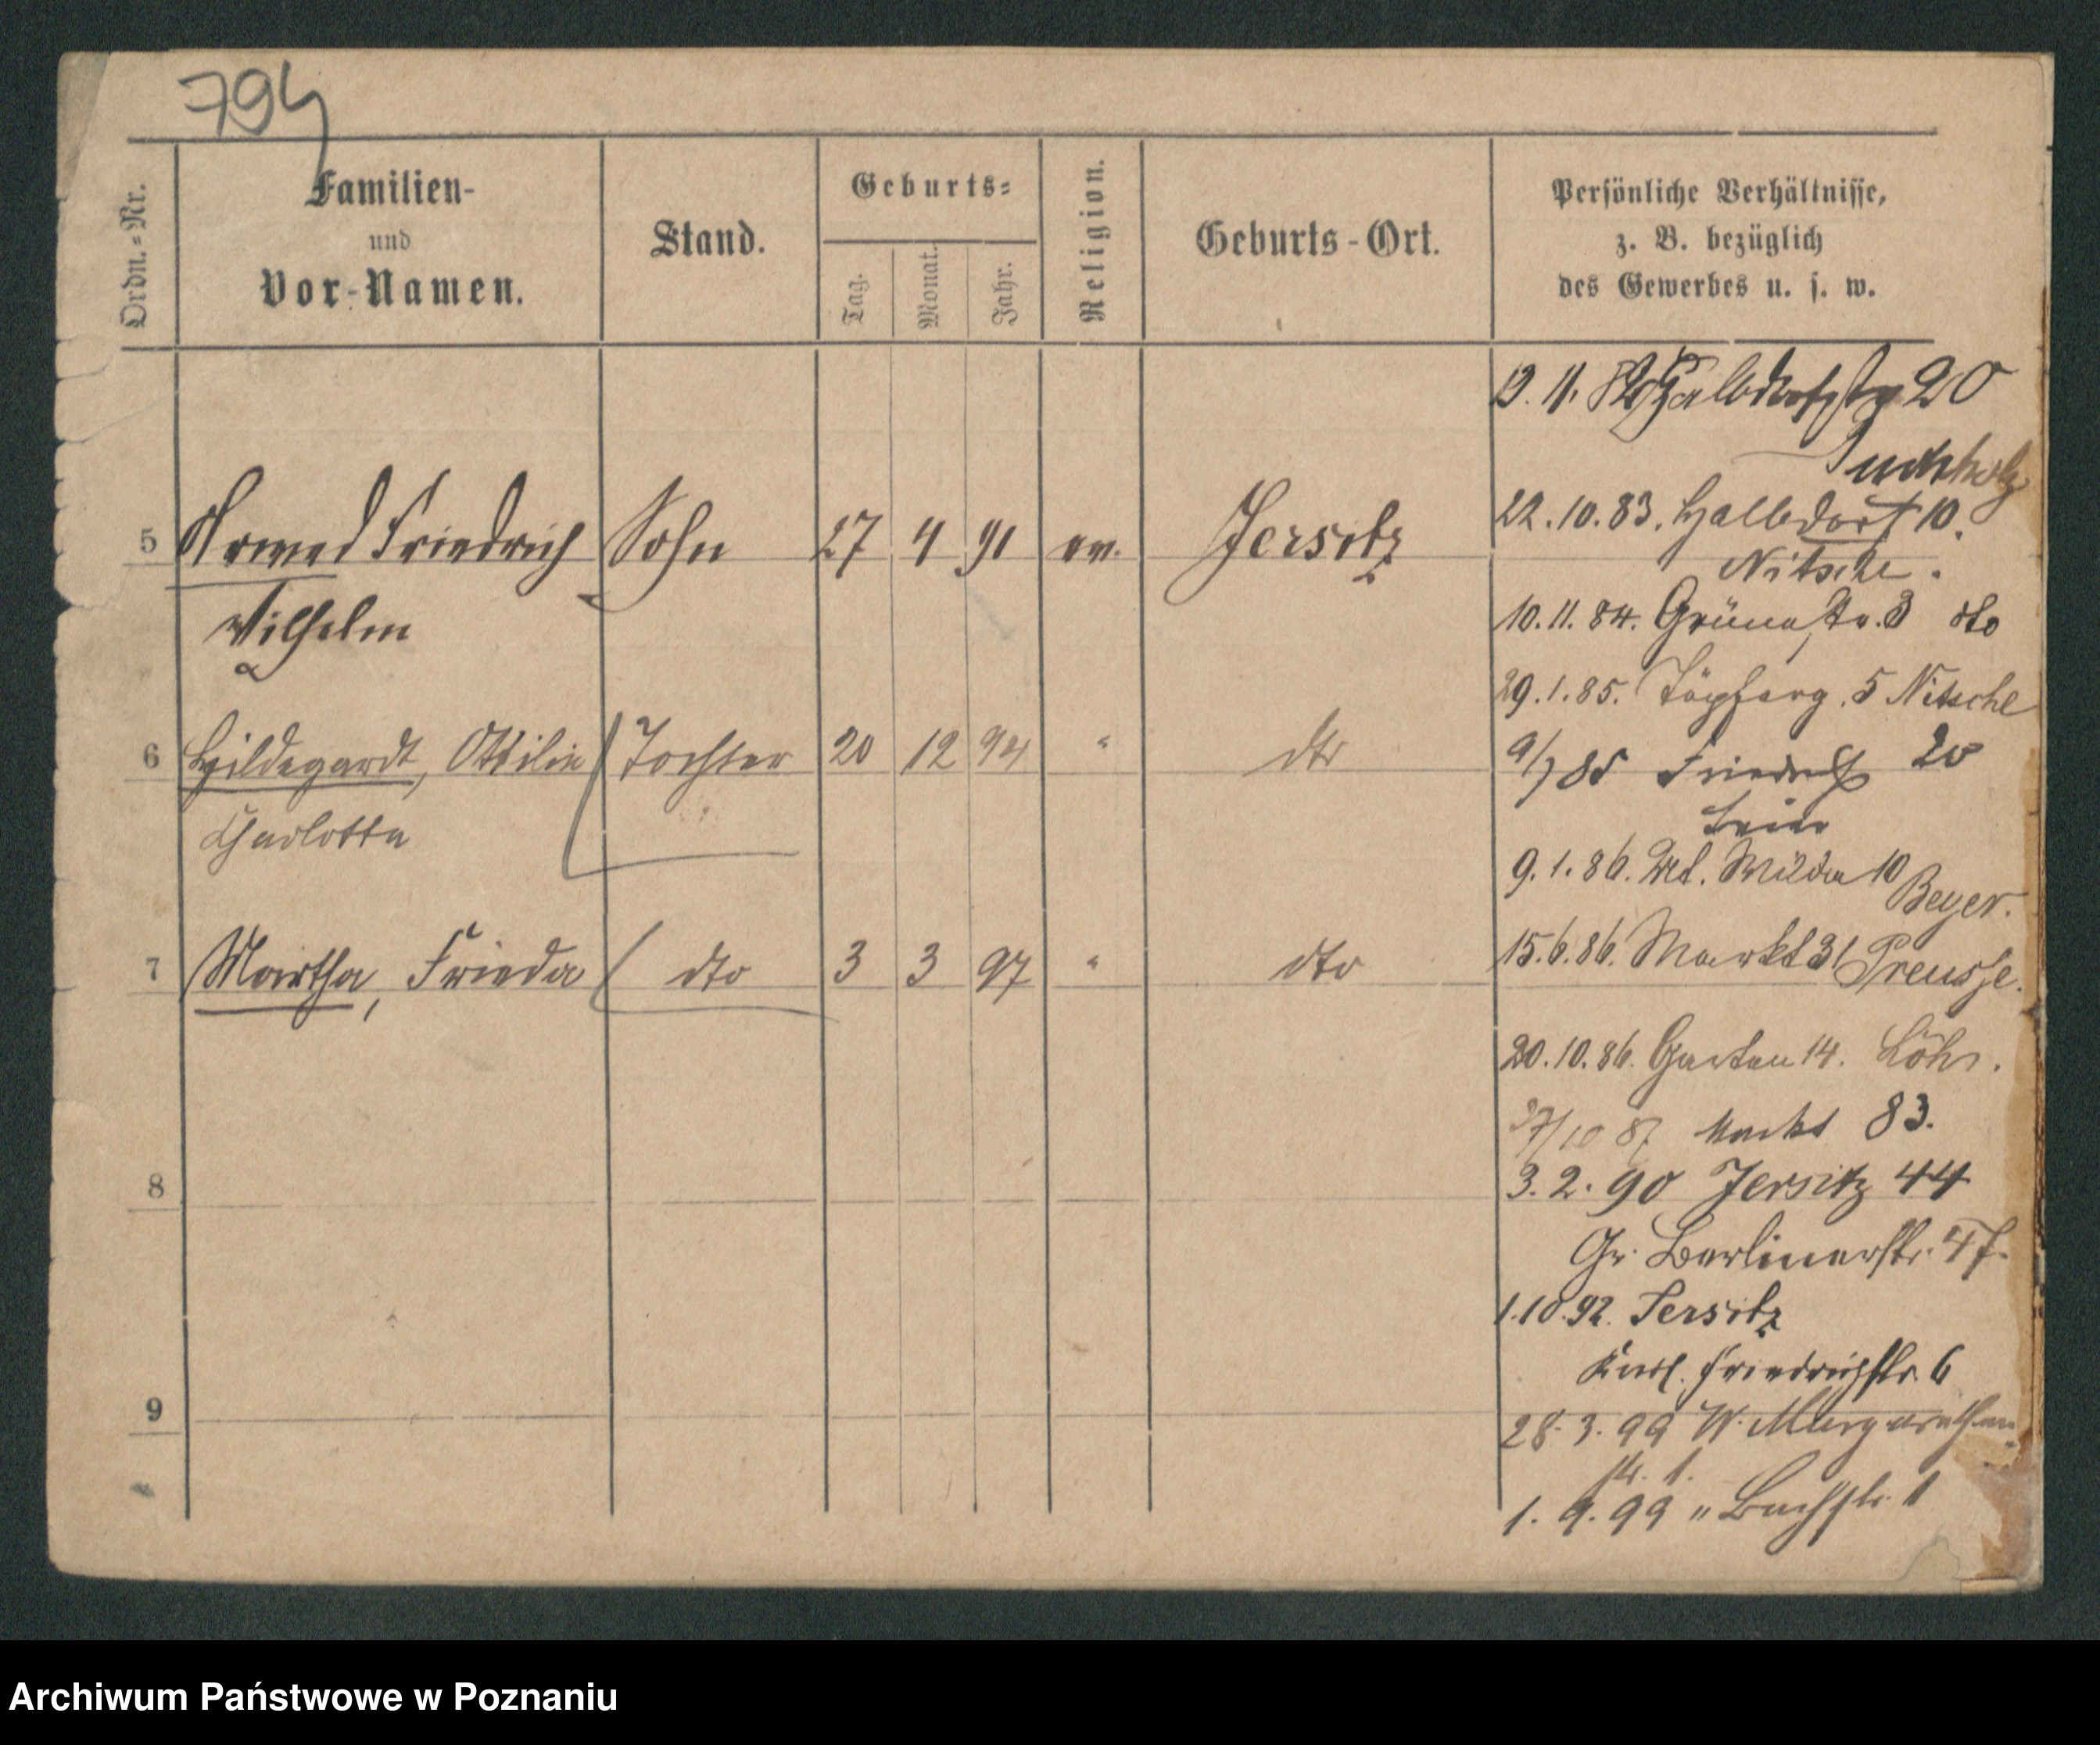 794
Ordn.-Nr.
Familien-
und
Vor-Namen.
Stand.
Geburts-
Tag.
Monat.
Jahr.
Religion.
Geburts-Ort.
Persönliche Verhältnisse,
z. B. bezüglich
des Gewerbes u. s. w.
5 Friedrich Sohn 27 4 91 ev. Jersitz
Wilhelm
6 Hildegardt, Ottilie Tochter 20 12 94 " dto
Charlotte
7 Martha, Frieda dto 3 3 97 " dto
8
9
11. 82 Halbdorfstr 20
22.10.83. Halbdorf 10.
Nitsche.
10.11.84. Grünestr. 3 dto
29.1.85. Töpferg. 5 Nitsche
9/7 85 Friedrich 20
9.1.86. Wilda 10
Beyer.
15.6.86. Markt 31 Preusse.
20.10.86. Garten 14. Löhr.
27/10 87 Markt 83.
3.2.90 Jersitz 44
Gr. Berlinerstr. 47.
1.10.92. Jersitz
Friedrichstr. 6
28.3.99 W. Margarethen-
str. 1.
1.9.99 " Bachstr. 1
Archiwum Państwowe w Poznaniu